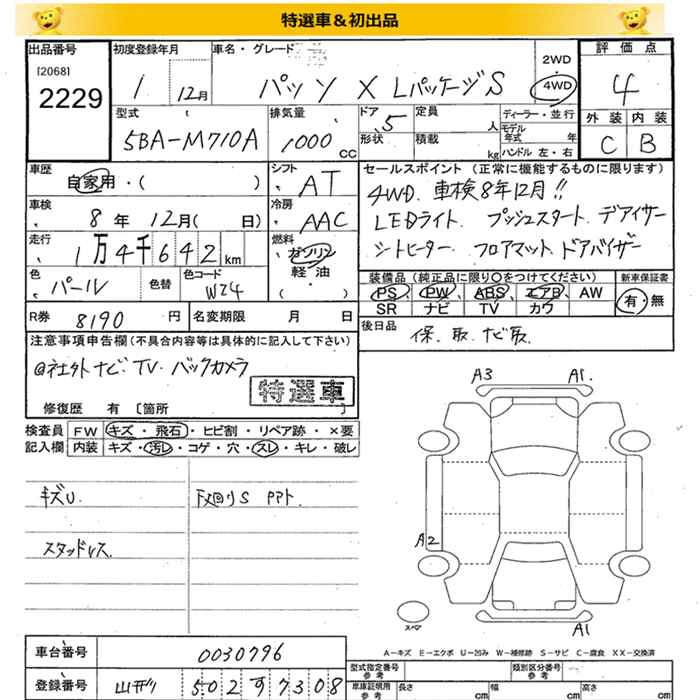 特選車＆初出品
出品番号 初度登録年月 車名・グレード 評価点
[2068]
2229
1 12月 パッソ X Lパッケージ S 2WD 4WD 4
型式 排気量 ドア 定員 ディーラー・並行 外装 内装
5BA-M710A 1000 CC 5 人 モデル年式 年 C B
形状 積載 kg ハンドル 左・右
車歴 シフト セールスポイント (正常に機能するものに限ります)
自家用・( ) AT 4WD. 車検8年12月!!
車検 冷房 LEDライト プッシュスタート デアイサー
8年 12月( 日) AAC シートヒーター フロアマット ドアバイザー
走行 燃料
1万4千642km ガソリン
軽・油
・( )
色 色替 色コード 装備品 (純正品に限り○をつけてください) 新車保証書
パール W24 PS PW ABS エアB AW 有・無
SR ナビ TV カワ
R券 8190円 名変期限 月 日 後日品
保.取.ナビ取
注意事項申告欄 (不具合内容等は具体的に記入して下さい)
@社外ナビ.TV.バックカメラ
特選車
修復歴 有 [箇所 ]
検査員 FW キズ・飛石・ヒビ割・リペア跡・×要
記入欄 内装 キズ・汚レ・コゲ・穴・スレ・キレ・破レ
キズU 下廻りS
スタッドレス
A3 A1.
A2
スペア A1
A-キズ E-エクボ U-凹み W-補修跡 S-サビ C-腐食 XX-交換済
車台番号 0030796
登録番号 502 す 7308
型式指定番号 参考 類別区分番号 参考
車庫証明用 参考 長さ cm 幅 cm 高さ cm